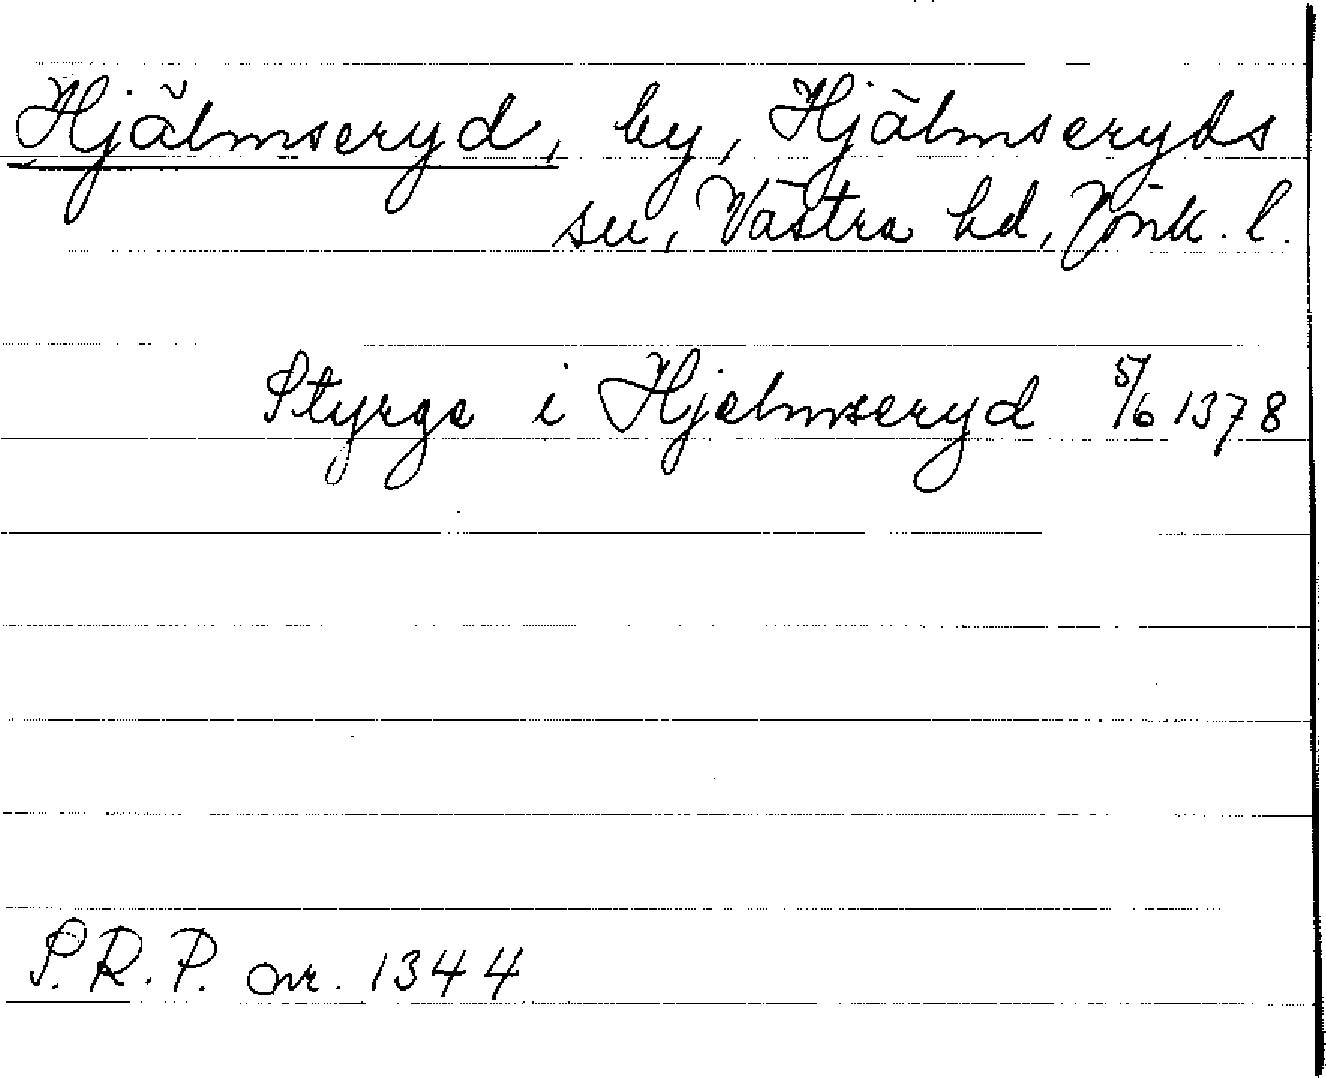 Hjälmseryd, by, Hjälmseryds
sn, Västra hd, Jönk. l.
Styrge i Hjelmseryd 5/6 1378
S.R.P. nr. 1344